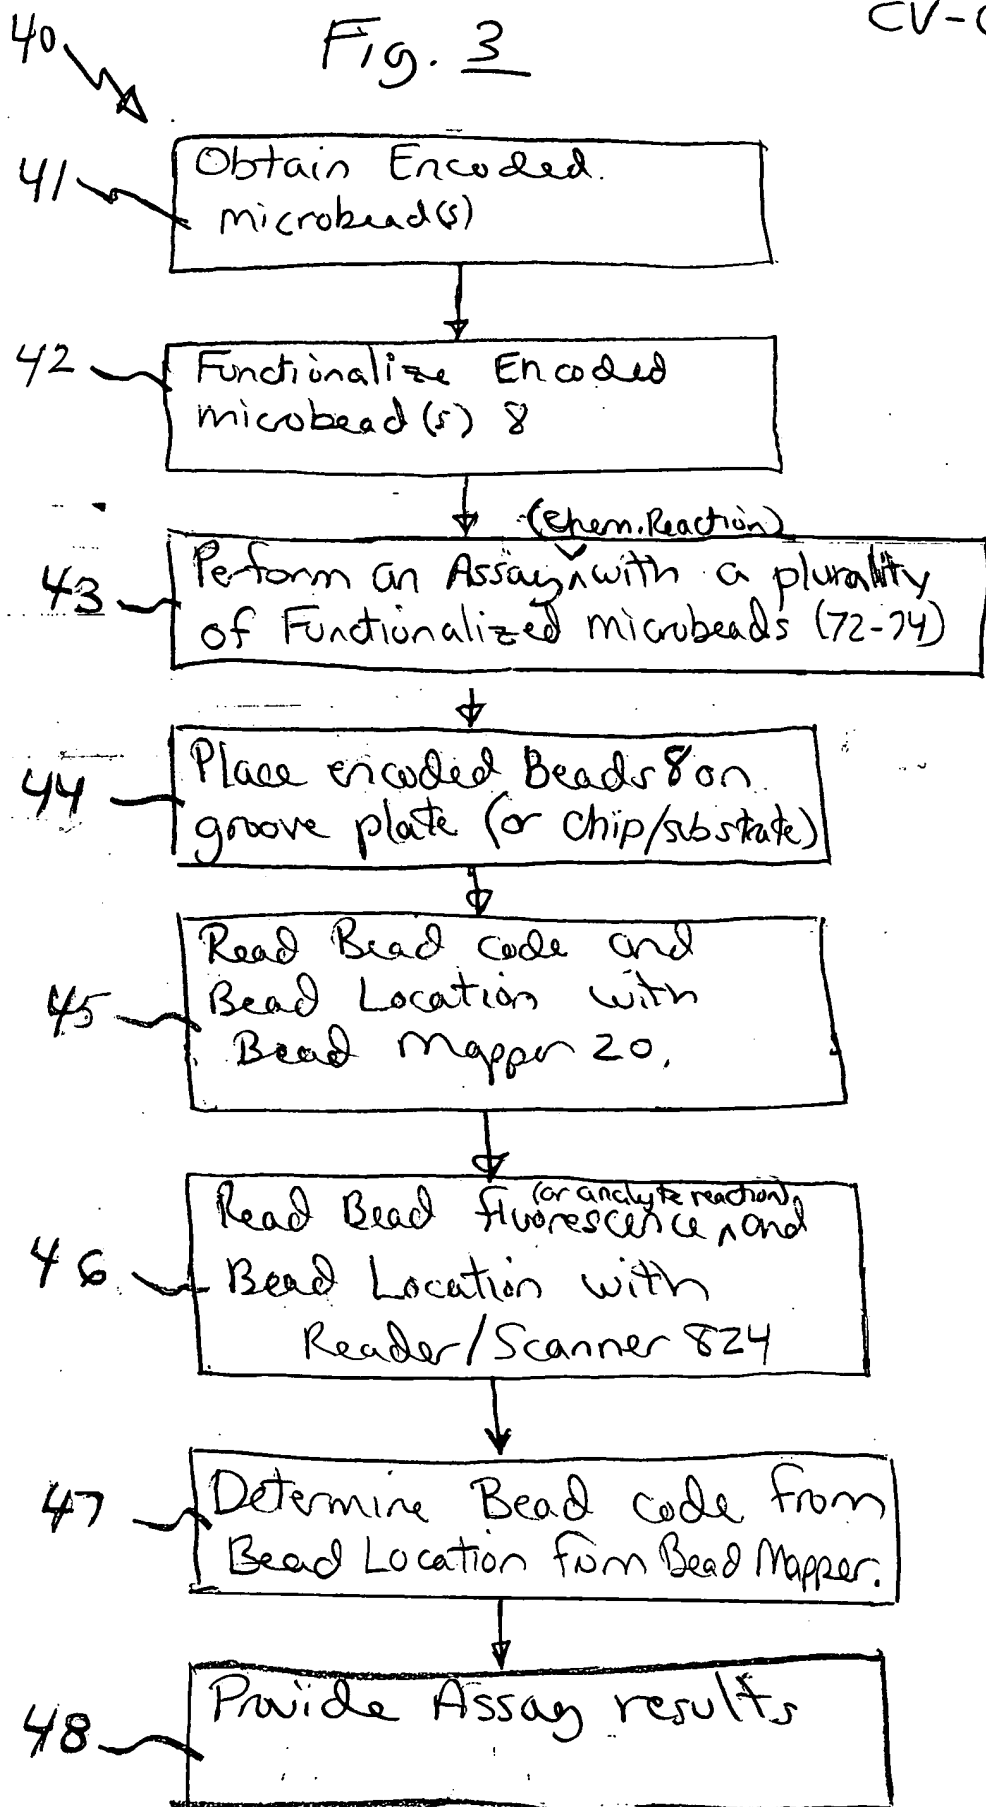 40
Fig. 3
CV-
41
Obtain Encoded.
microbead(s)
42
Functionalize Encoded
microbead(s) 8
(Chem. Reaction)
43
Perform an Assay ^ with a plurality
of Functionalized microbeads (72-74)
44
Place encoded Beads 8 on
groove plate (or chip/substrate)
45
Read Bead code and
Bead Location with
Bead Mapper 20.
46
(or analyte reaction)
Read Bead fluorescence ^ and
Bead Location with
Reader/Scanner 824
47
Determine Bead code from
Bead Location from Bead Mapper.
48
Provide Assay results